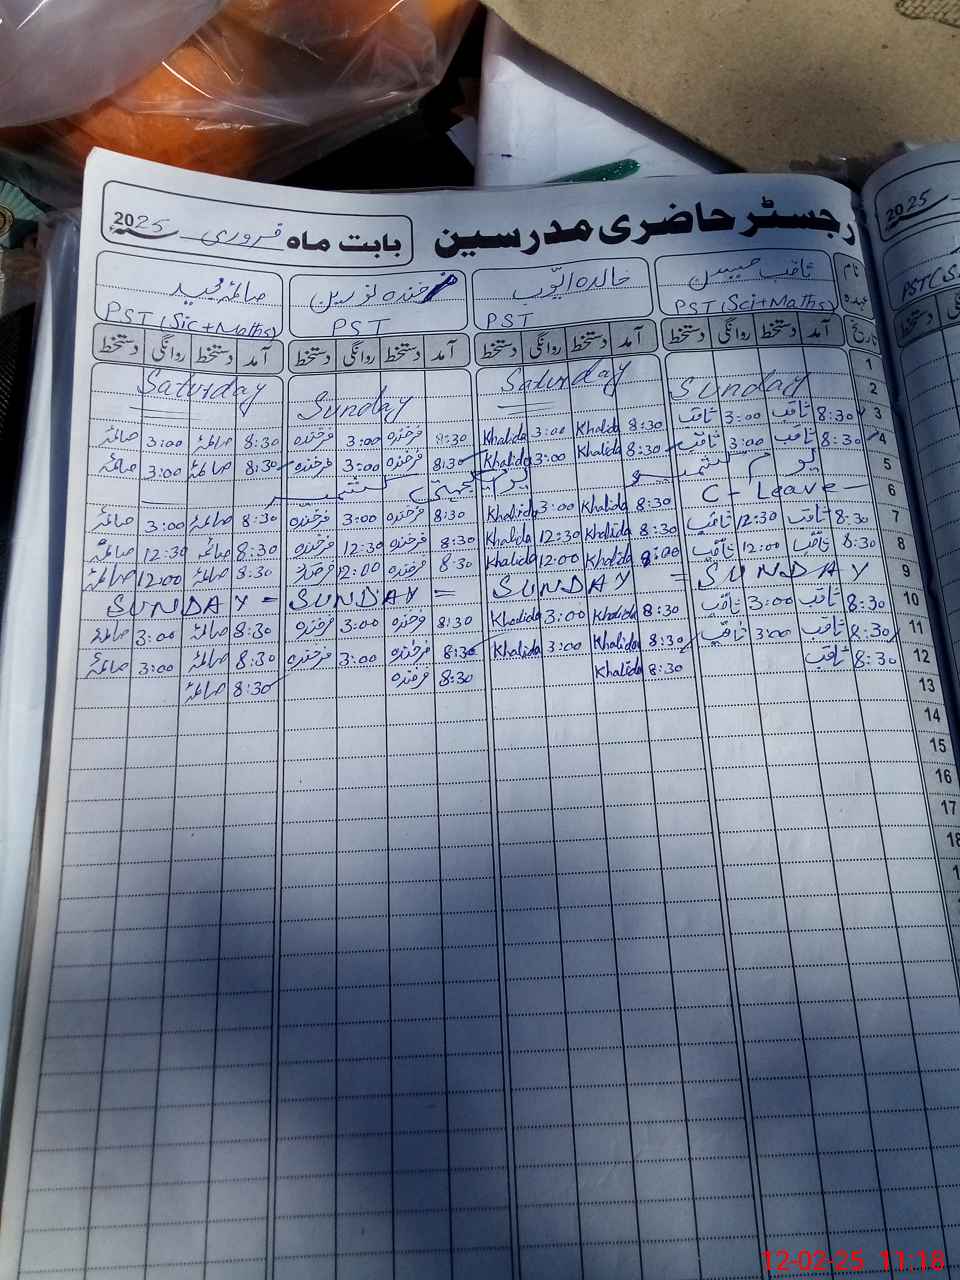 رجسٹر حاضری مدرسین بابت ماہ فروری 2025ء
نام ثاقب حبیب خالدہ ایوب فرخندہ نورین صائمہ مجید
عہدہ PST (Sci+Maths) PST PST PST (Sic+Maths)
تاریخ آمد دستخط روانگی دستخط آمد دستخط روانگی دستخط آمد دستخط روانگی دستخط آمد دستخط روانگی دستخط
1 Saturday Saturday
2 Sunday Sunday
3 8:30 ثاقب 3:00 ثاقب 8:30 Khalida 3:00 Khalida 8:30 فرخندہ 3:00 فرخندہ 8:30 صائمہ 3:00 صائمہ
4 8:30 ثاقب 3:00 ثاقب 8:30 Khalida 3:00 Khalida 8:30 فرخندہ 3:00 فرخندہ 8:30 صائمہ 3:00 صائمہ
5 یوم کشمیر یوم یکجہتی کشمیر
6 C-Leave 8:30 Khalida 3:00 Khalida 8:30 فرخندہ 3:00 فرخندہ 8:30 صائمہ 3:00 صائمہ
7 8:30 ثاقب 12:30 ثاقب 8:30 Khalida 12:30 Khalida 8:30 فرخندہ 12:30 فرخندہ 8:30 صائمہ 12:30 صائمہ
8 8:30 ثاقب 12:00 ثاقب 8:00 Khalida 12:00 Khalida 8:30 فرخندہ 12:00 فرخندہ 8:30 صائمہ 12:00 صائمہ
9 SUNDAY = SUNDAY = SUNDAY = SUNDAY
10 8:30 ثاقب 3:00 ثاقب 8:30 Khalida 3:00 Khalida 8:30 فرخندہ 3:00 فرخندہ 8:30 صائمہ 3:00 صائمہ
11 8:30 ثاقب 3:00 ثاقب 8:30 Khalida 3:00 Khalida 8:30 فرخندہ 3:00 فرخندہ 8:30 صائمہ 3:00 صائمہ
12 8:30 ثاقب 8:30 Khalida 8:30 فرخندہ 8:30 صائمہ
13
14
15
16
17
18
2025
PST (S
12-02-25 11:18